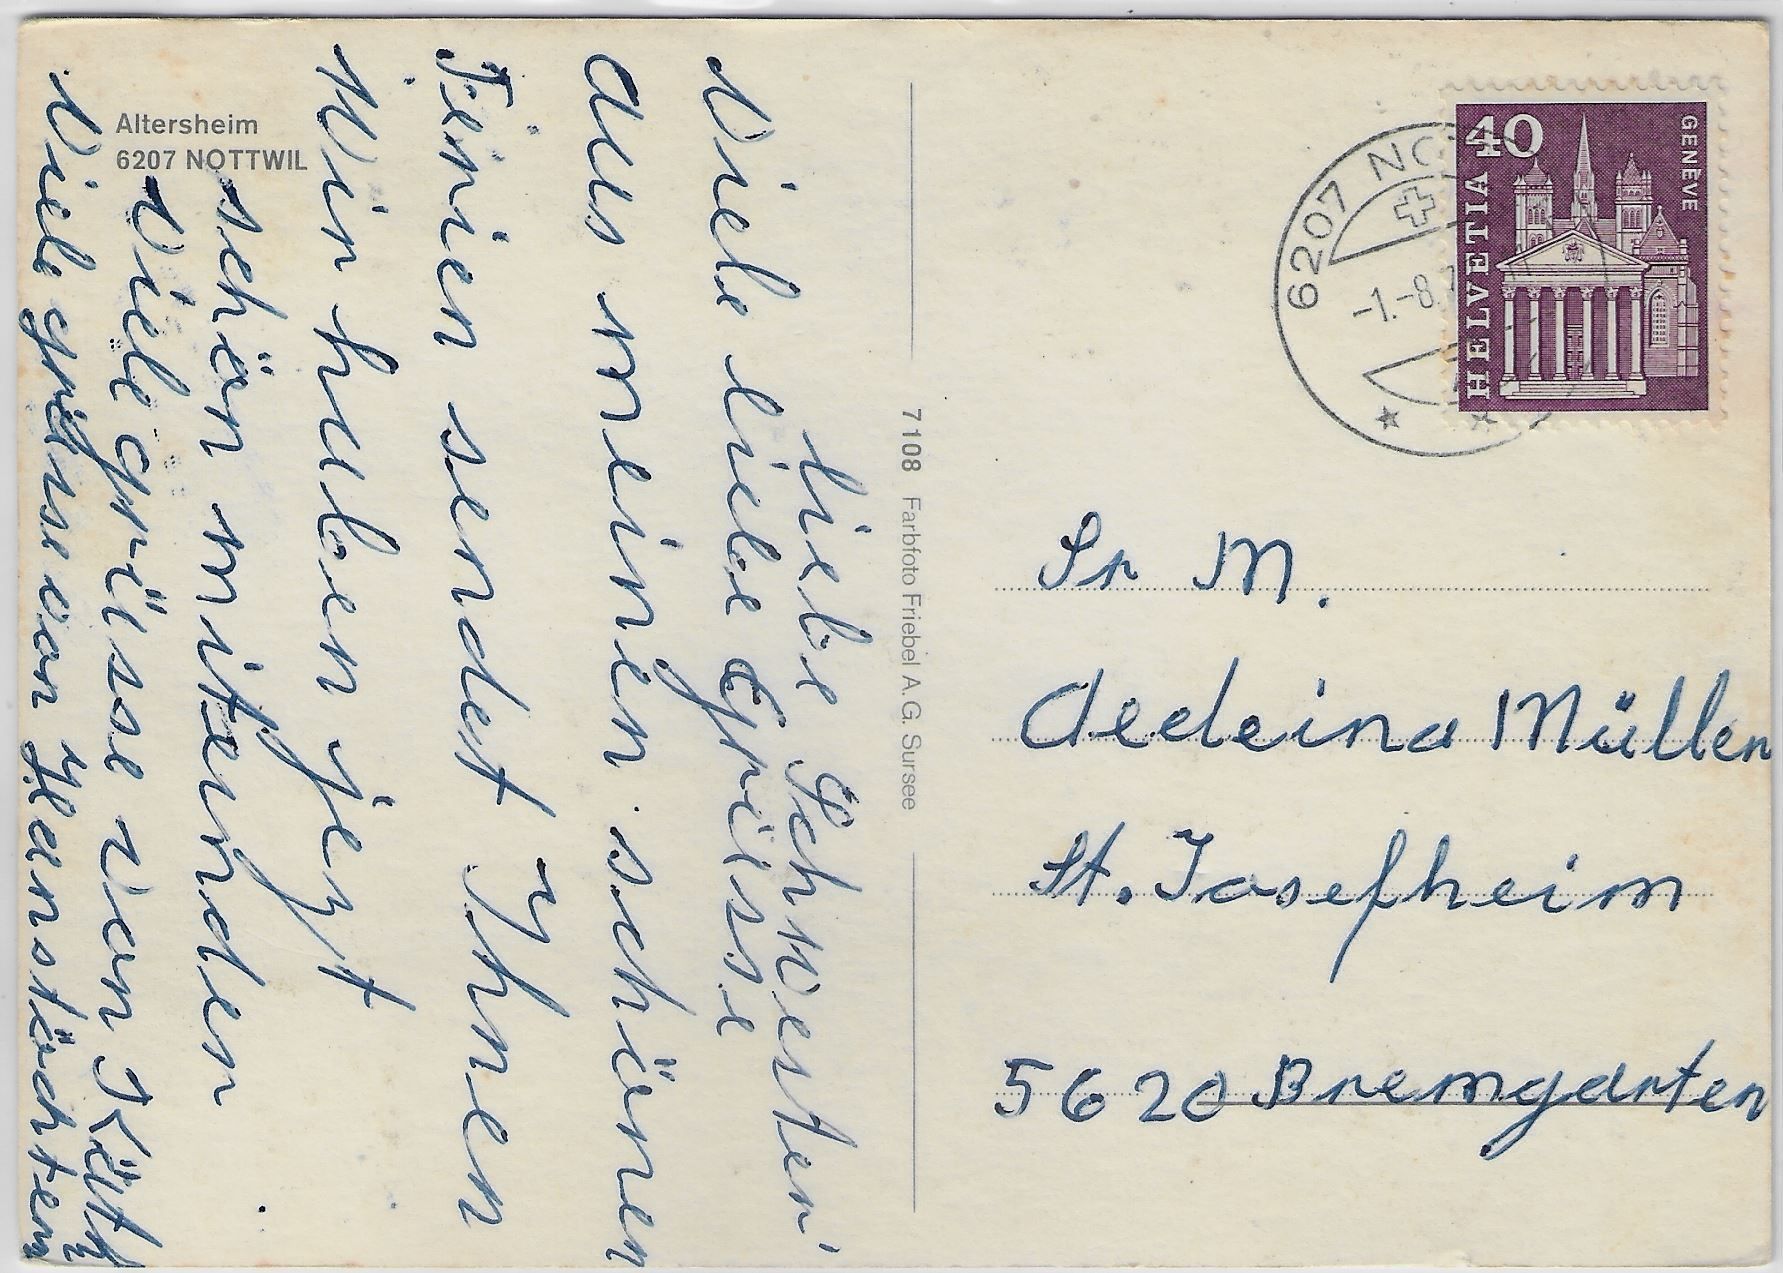 Altersheim
6207 NOTTWIL
Liebe Schwester
Viele liebe Grüsse
aus meinen schönen
Ferien sendet Ihnen
Wir haben jezt
schön miteinder
Viele grüsse von Käthi
Viele grüsse von Hanstöchtern
7108 Farbfoto Friebel A.G. Sursee
6207 NOT
-1.-8.7
40
HELVETIA
GENÈVE
Sr M.
Aedeina Müller
St. Josefheim
5620 Bremgarten